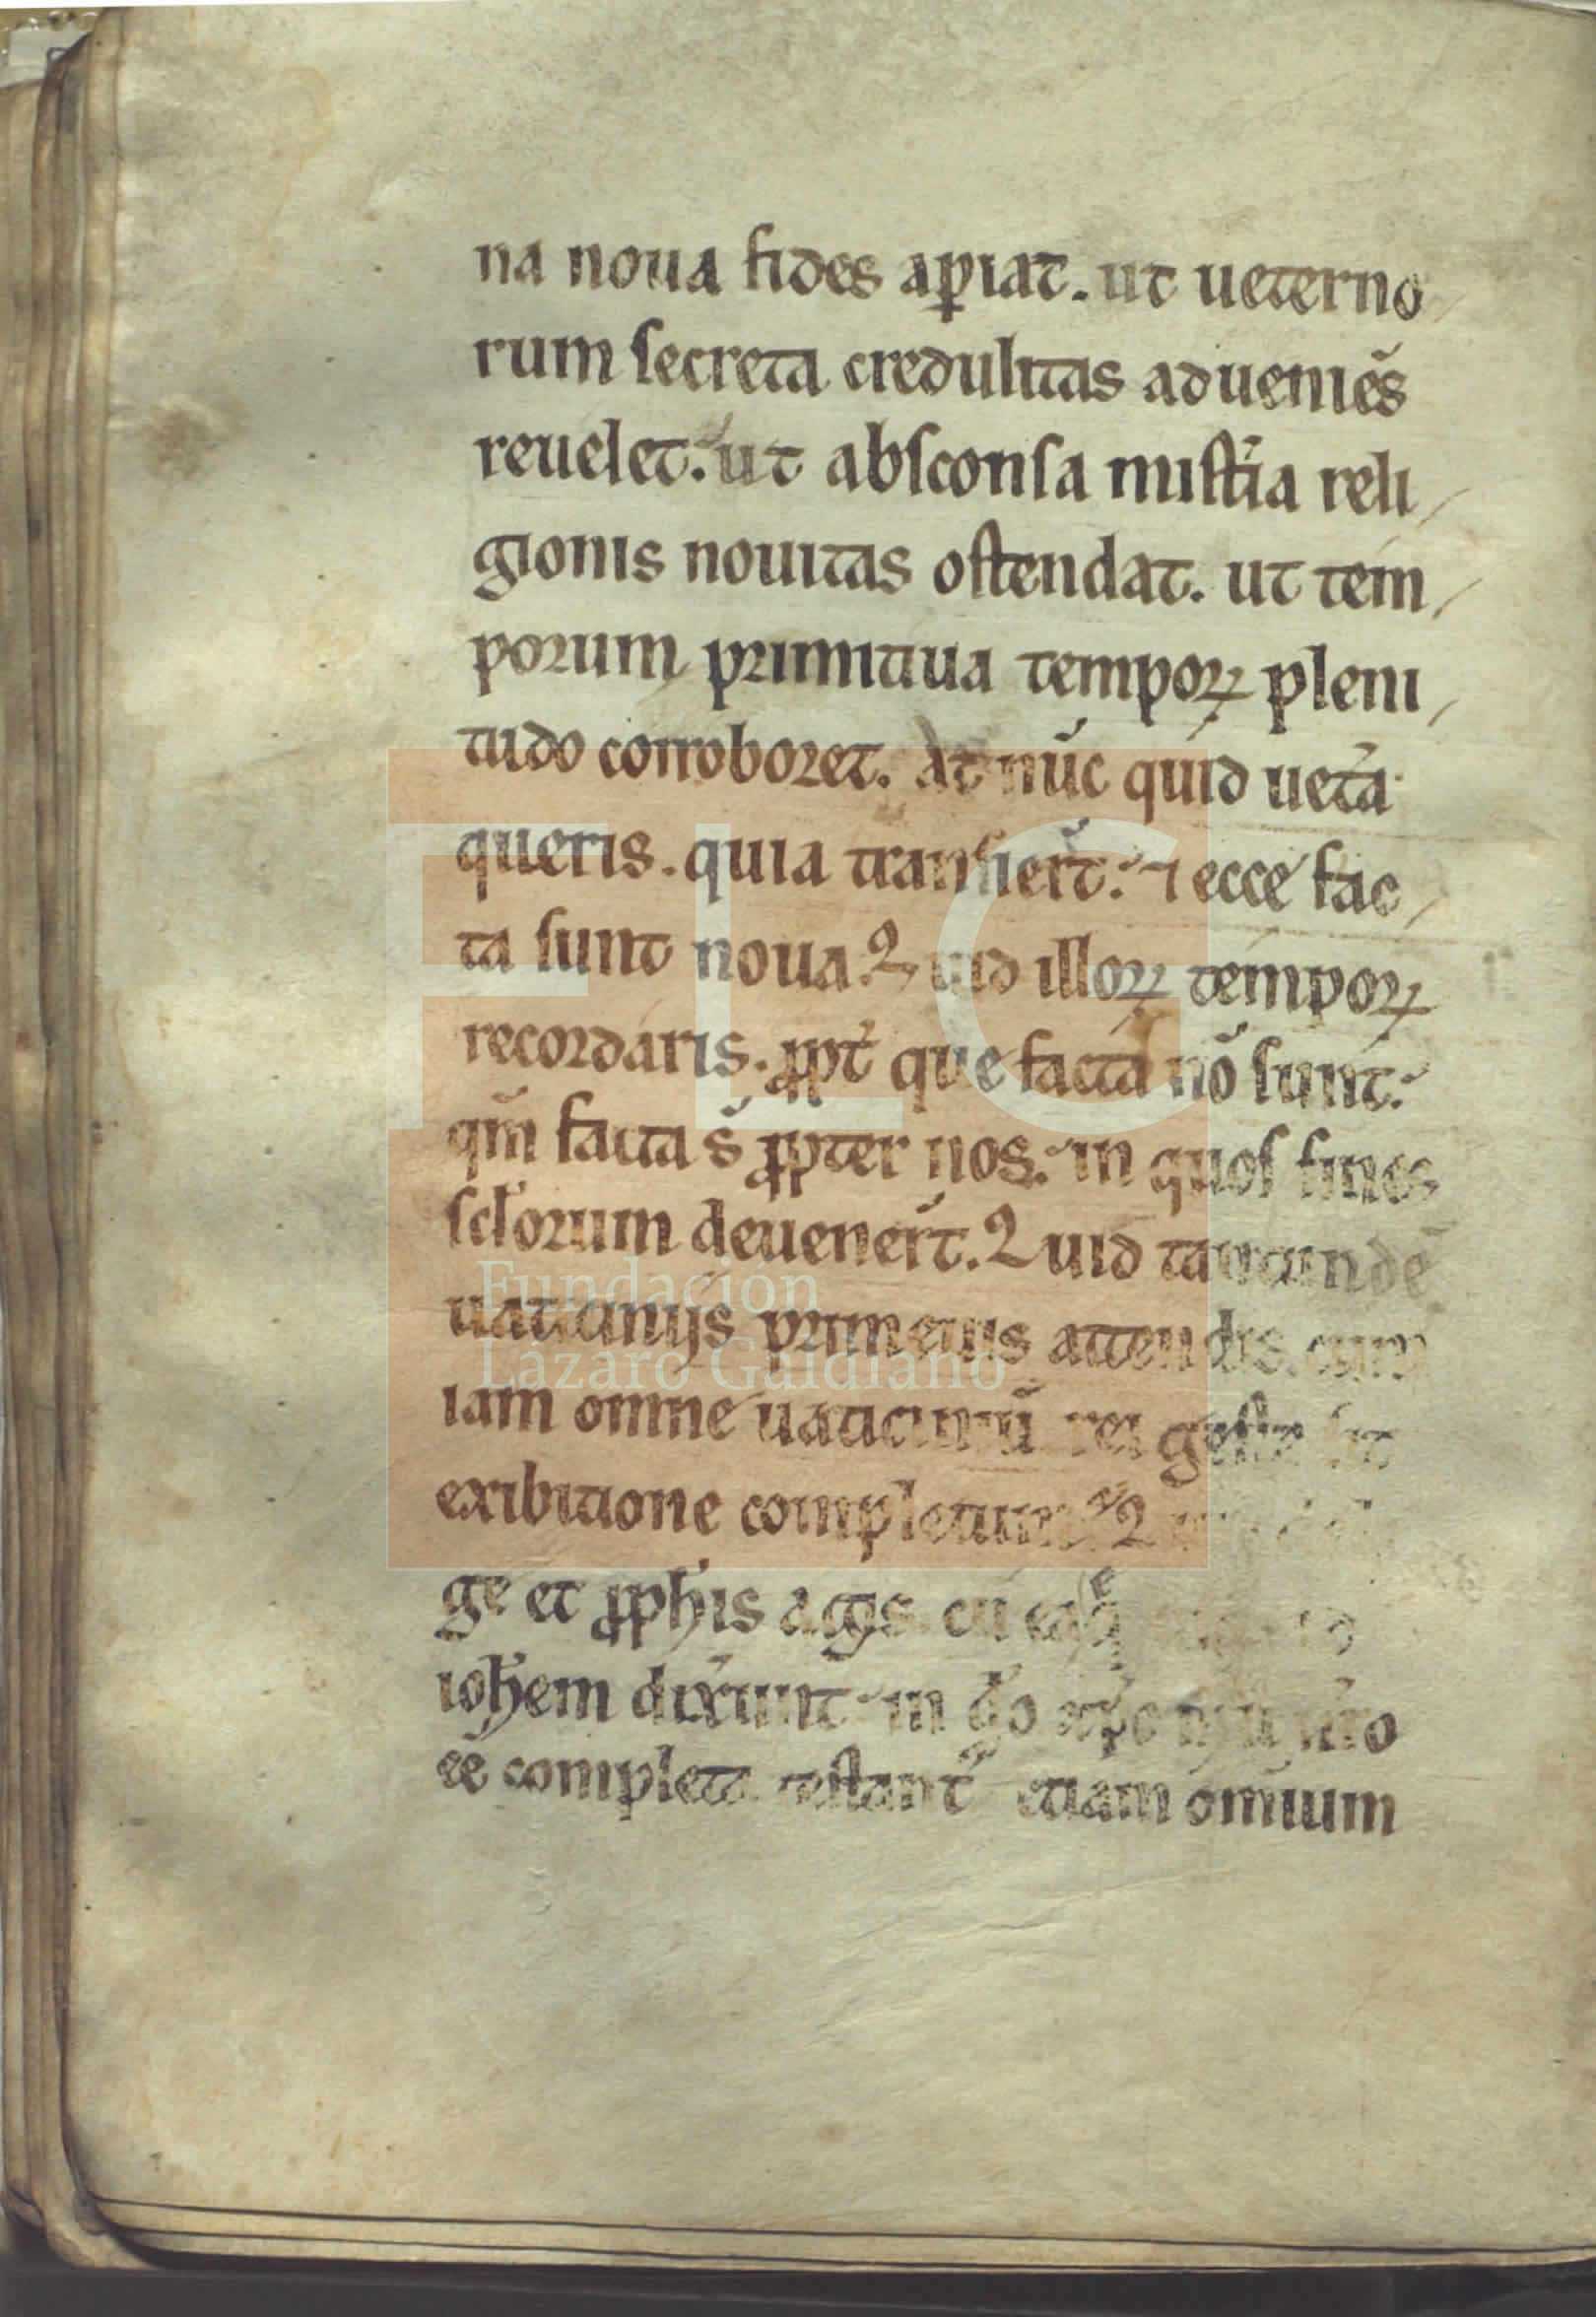 na noua fides aꝑiat. ut ueterno
rum secreta credulitas adueniẽs
reuelet. ut absconsa mistẽia reli
gionis nouitas ostendat. ut tem
porum primitiua temporꝝ pleni
tudo corroboret. At nũc quid uetẽa
queris. quia transiert̃. ⁊ ecce fac
ta sunt noua. Quid illorꝝ temporꝝ
recordaris. ꝓpt̃ que facta nõ sunt.
qm̃ facta s̃ ꝓpter nos. in quos fines
sclorum deuenert̃. Quid
uaticinijs attendis. cum
iam omne uaticiniũ rei geste sit
exibitione completum. Q
ge et ꝓphis agis cũ
iohem dixerunt in
ee completa testant̃ etiam omium
Fundación
Lázaro Galdiano
FLG